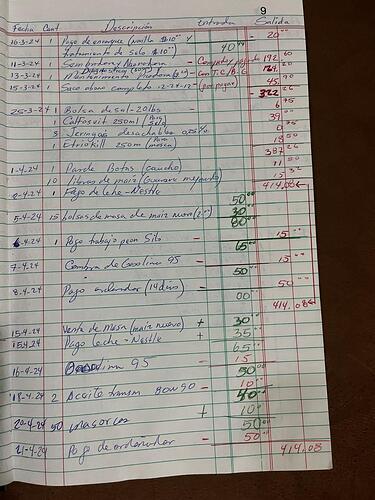 9
Fecha Cant Descripción Entrada Salida
10-3-24 1 Pago de empaque (vainilla $10.00) y - 20.00
tratamiento de Silo $10.00 40.00
11-3-24 1 Sembradora y - 192.60
13-3-24 1 Mantenimiento Picadora con T.C./B.G 124.20
15-3-24 1 Saco abono completo 12-24-12 (por pagar) 45.00
- 322.26
25-3-24 1 Bolsa de sal-20lbs 6.75
1 Calfosvit 250ml 39.00
3 Jeringas desechables 0.
1 Etriokill 250m (Para mosca) 18.50
387.26
1-4-24 1 Par de Botas (caucho) 11.50
10 libras de maiz 15.32
-4-24 1 Pago de leche-Nestle 414.08
50.00
5-4-24 15 bolsas de masa de maiz nuevo (2.00) 30.00
80.00
6-4-24 1 Pago trabajo peon Silo - 15.00
65.00
7-4-24 Compra de Gasolina 95 - 15.00
50.00
8-4-24 Pago ordeñador (14 dias) - 50.00
00.00
414.08
15-4-24 Venta de Masa (maiz nuevo) + 30.00
15-4-24 Pago leche-Nestle + 35.00
65.00
16-4-24 Gasolina 95 - 15.00
50.00
18-4-24 2 Aceite transm. 80W90 - 10.00
40.00
20-4-24 50 mazorcas + 10.00
50.00
21-4-24 Pago de ordeñador - 50.00
414.08